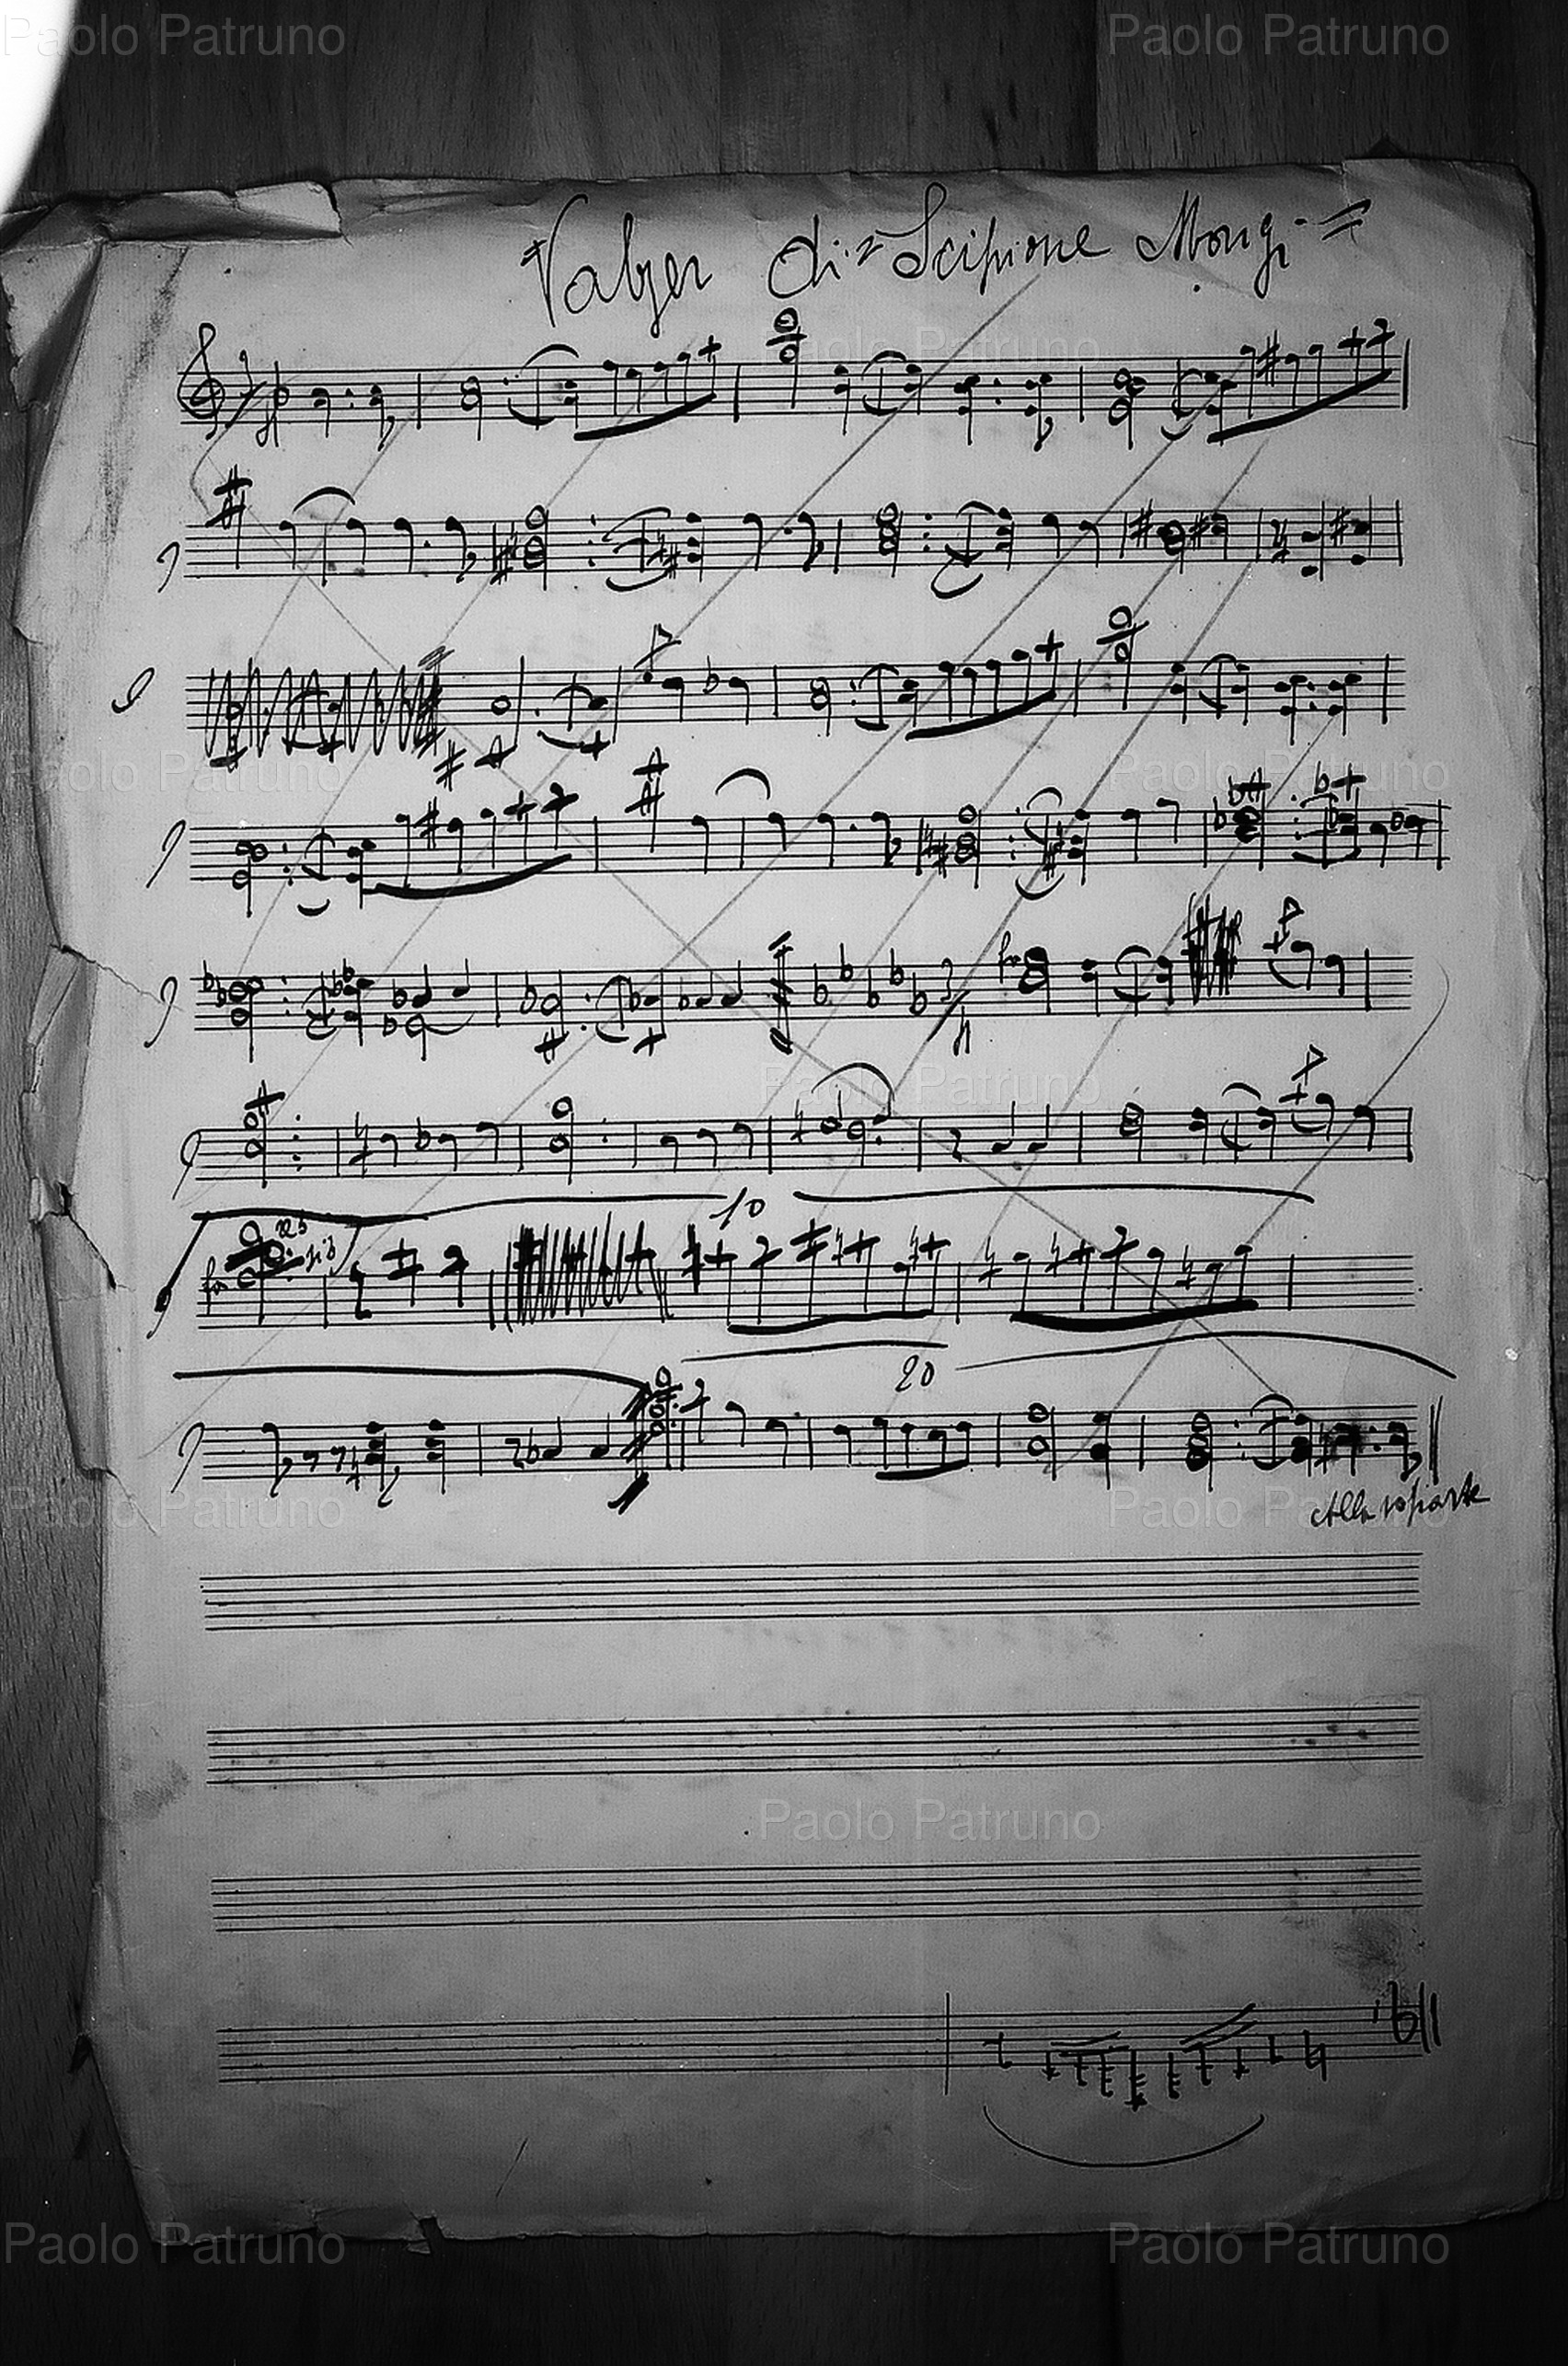 Paolo Patruno Paolo Patruno
Valzer di = Scipione Mongi =
Paolo Patruno
Paolo Patruno Paolo Patruno
fa
Paolo Patruno
10
fa
20
Paolo Patruno Paolo Patruno
Alla
Paolo Patruno
Paolo Patruno Paolo Patruno